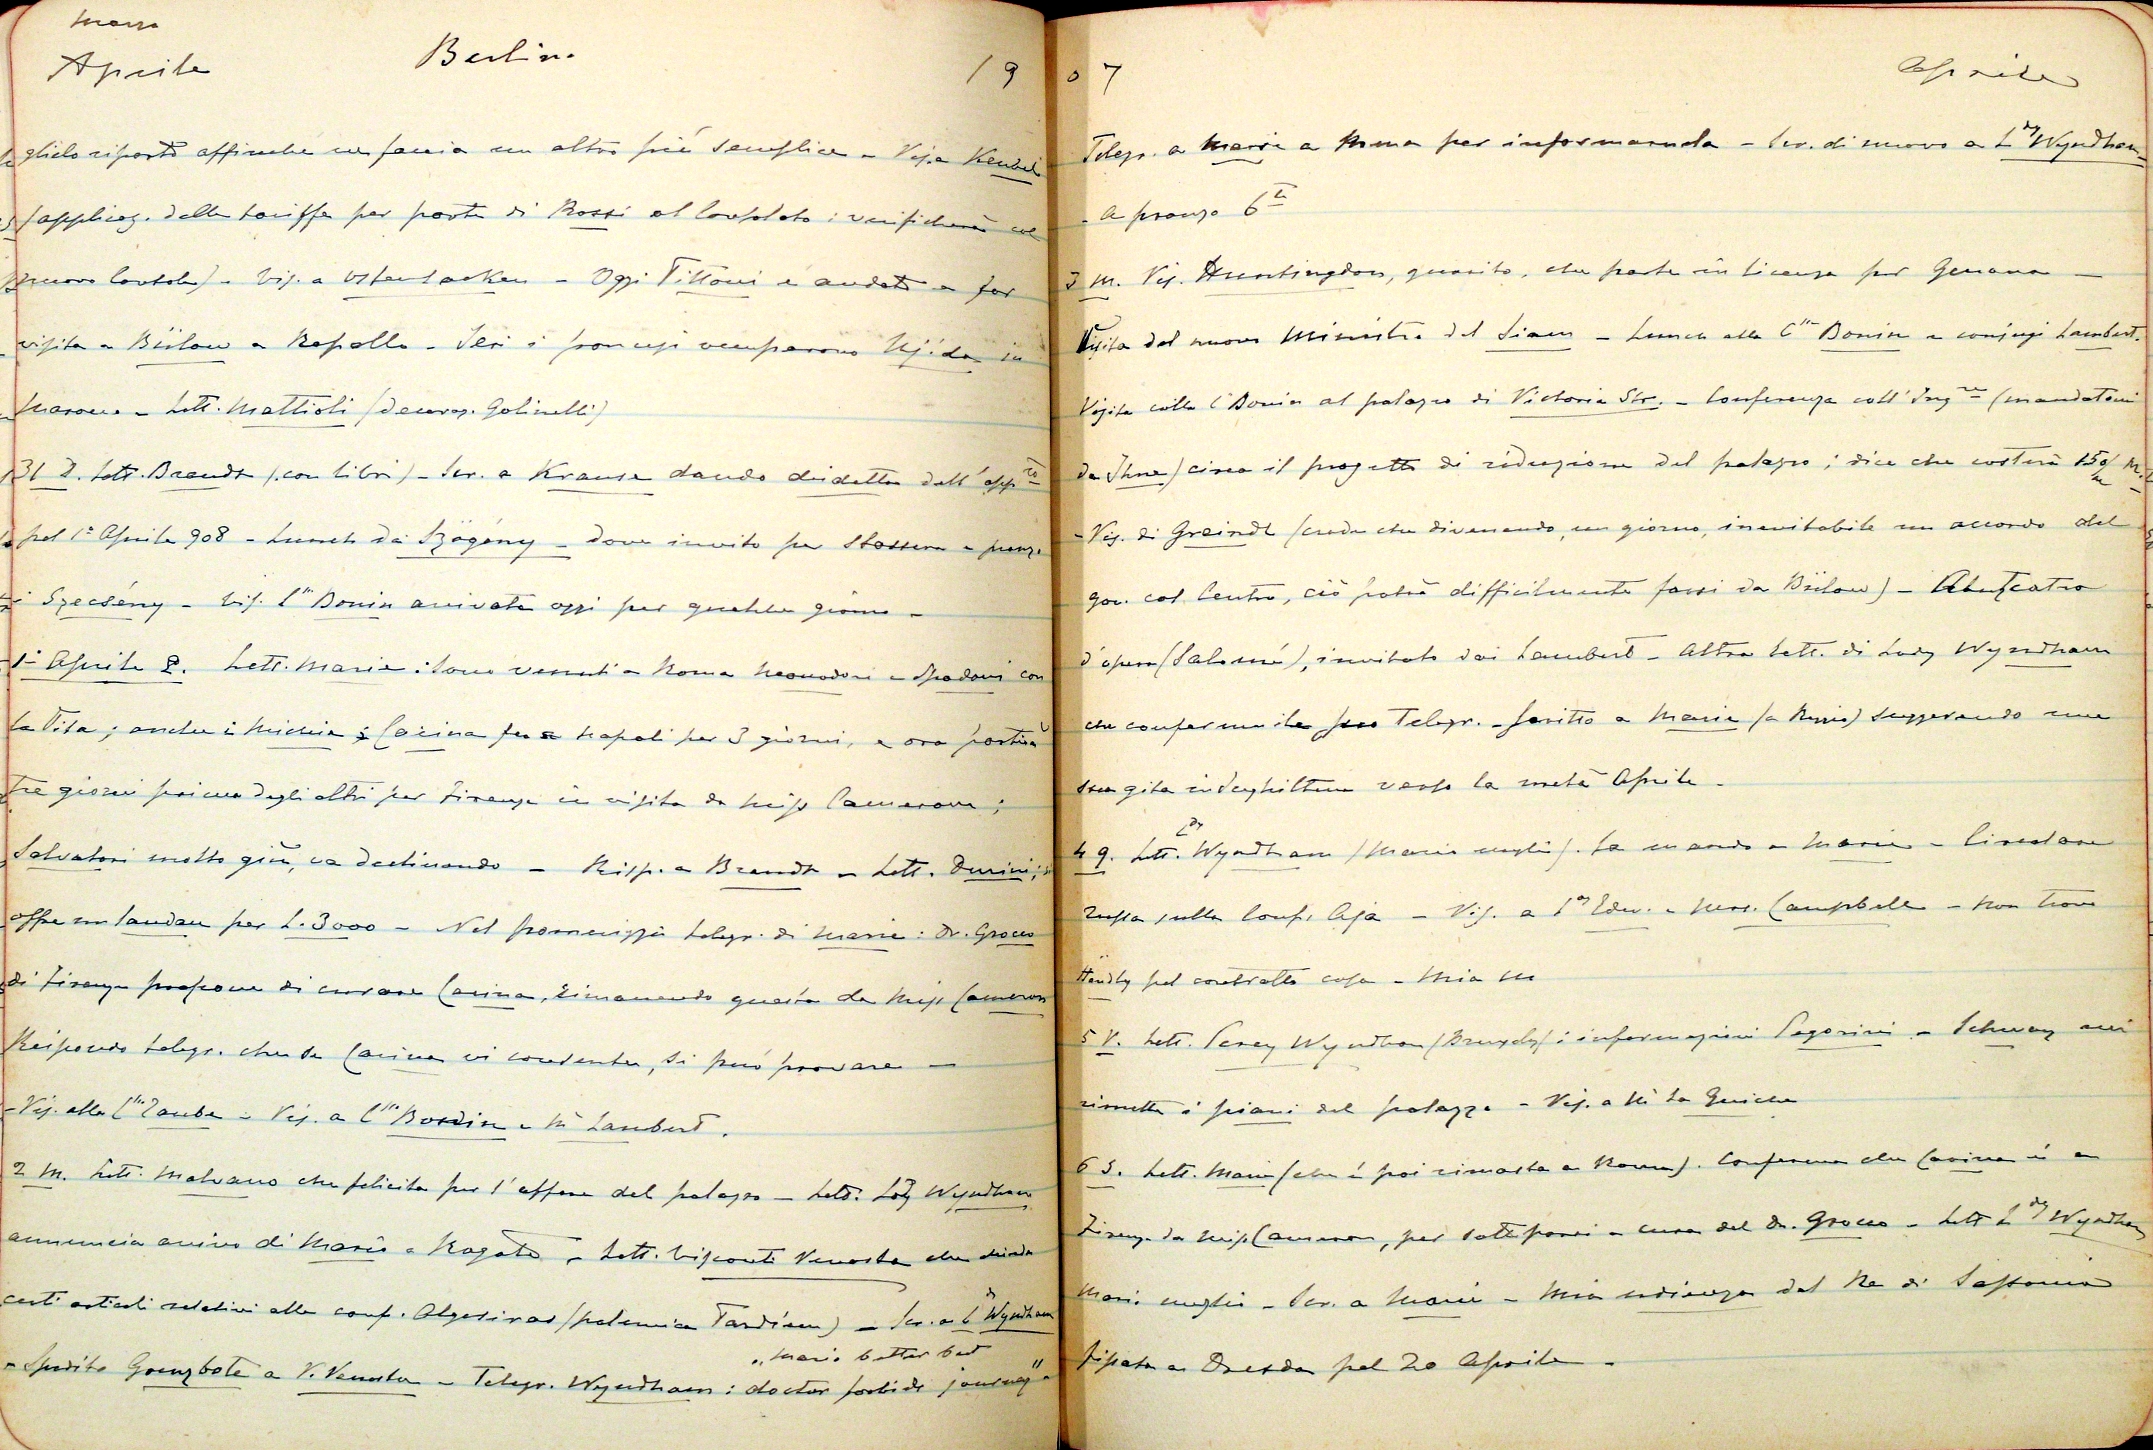 Marzo
Aprile Berlino 19
glielo riportò affinché ne faccia un altro più semplice - Vis. a Kendel
(applicaz. della tariffa per parte di Rossi al Consolato: verificherà col
nuovo Console) - Vis. a Ostensacken - Oggi Tittoni è andato a far
visita a Bülow a Rapallo - Ieri i francesi occuparono Ujida in
Marocco - Lett. Mattioli (decoraz. Golinelli)
31 D. Lett. Brandt (con libri) - Scr. a Krause dando disdetta dell'app.to
pel 1° Aprile 908 - Lunch da Szögény - dove invito per stassera a pranzo
i Szecsény - Vis. C.ssa Bonin arrivata oggi per qualche giorno -
1° Aprile L. Lett. Maria: sono venuti a Roma e Spadoni con
la Tita; anche i Carina fu a Napoli per 3 giorni, e ora partirà
tre giorni prima degli altri per Firenze in visita da Miss Cameron;
Salvatori molto giù, va declinando - Risp. a Brandt - Lett. Durini; si
offre un landau per L. 3000 - Nel pomeriggio telegr. di Maria: Dr. Grocco
di Firenze propone di curare Carina, rimanendo questa da Miss Cameron
Rispondo telegr. che se Carina vi consente, si può provare -
- Vis. alla C.ssa Taube - Vis. a C.ssa Bonin e M. Lambert.
2 M. Lett. Malvano che felicita per l'affare del palazzo - Lett. Lady Wyndham
annuncia arrivo di Mario a Ragatz - Lett. Visconti Venosta che chiede
certi articoli relativi alla conf. Algesiras (polemica Tardieu) - Scr. a L.dy Wyndham
- Spedito Grenzbote a V. Venosta - Telegr. Wyndham: "Mario better but
doctor forbids journey"
07 Aprile
Telegr. a Maria a Roma per informarnela - Scr. di nuovo a L.dy Wyndham
- a pranzo
3 M. Vis. Huntingdon, guarito, che parte in licenza per Genova -
Visita del nuovo Ministro del Siam - Lunch alla C.ssa Bonin e coniugi Lambert.
Visita colla C. Bonin al palazzo di Victoria Str. - Conferenza coll'Ing.re (mandatomi
da Ihne) circa il progetto di riduzione del palazzo; dice che costerà 150/m M.
- Vis. di Greindl (crede che divenendo, un giorno, inevitabile un accordo del
gov. col Centro, ciò potrà difficilmente farsi da Bülow) - Al teatro
d'opera (Salomé), invitato dai Lambert - Altra lett. di Lady Wyndham
che conferma il suo Telegr. - Scritto a Maria (a Roma) suggerendo una
sua gita in Inghilterra verso la metà Aprile -
4 G. Lett. L.dy Wyndham (Mario meglio). La mando a Maria - Circolare
russa sulla Conf. Aja - Vis. a L.dy Edw. e Mrs. Campbell - Non trovo
pel contratto casa - Mia m
5 V. Lett. Percy Wyndham: informazioni Pegorini - Schwarz mi
rimette i piani del palazzo - Vis. a M. La Guiche
6 S. Lett. Maria (che è poi rimasta a Roma). Conferma che Carina è a
Firenze da Miss Cameron, per sottoporsi a cura del Dr. Grocco - Lett. L.dy Wyndham
Mario meglio - Scr. a Maria - Mia udienza dal Re di Sassonia
fissata a Dresda pel 20 Aprile -